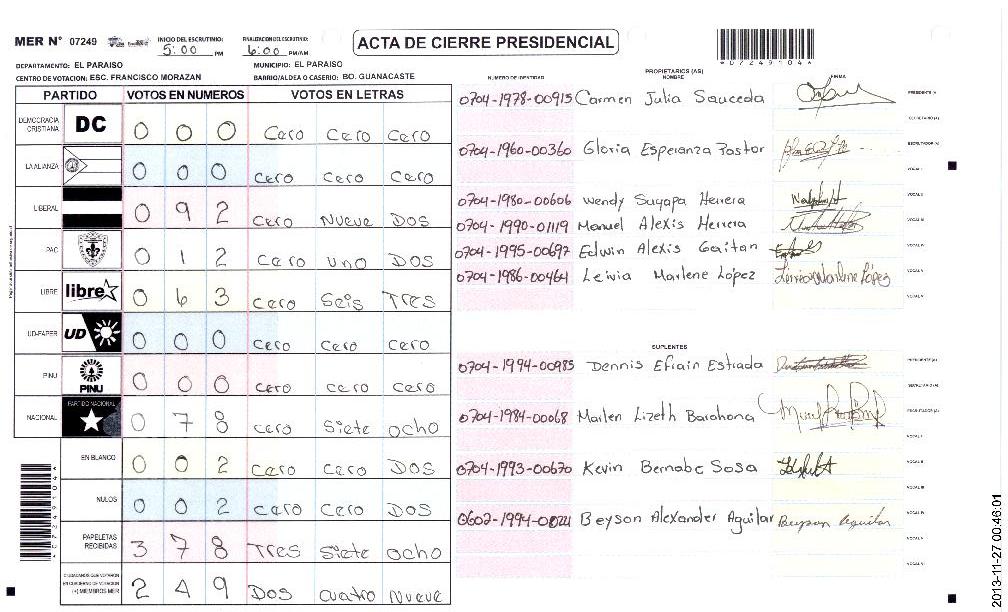 MER Nº 07249
INICIO DEL ESCRUTINIO: 5:00 PM
FINALIZACION DEL ESCRUTINIO: 6:00 PM/AM
ACTA DE CIERRE PRESIDENCIAL
*07249104*
DEPARTAMENTO: EL PARAISO
MUNICIPIO: EL PARAISO
CENTRO DE VOTACION: ESC. FRANCISCO MORAZAN
BARRIO/ALDEA O CASERIO: BO. GUANACASTE
PARTIDO VOTOS EN NUMEROS VOTOS EN LETRAS
DEMOCRACIA CRISTIANA DC 0 0 0 Cero Cero Cero
LA ALIANZA 0 0 0 Cero Cero Cero
LIBERAL 0 9 2 Cero Nueve Dos
PAC 0 1 2 Cero Uno Dos
LIBRE libre 0 6 3 Cero Seis Tres
UD-FAPER UD 0 0 0 Cero Cero Cero
PINU PINU 0 0 0 Cero Cero Cero
NACIONAL PARTIDO NACIONAL 0 7 8 Cero Siete Ocho
EN BLANCO 0 0 2 Cero Cero Dos
NULOS 0 0 2 Cero Cero Dos
PAPELETAS RECIBIDAS 3 7 8 Tres Siete Ocho
CIUDADANOS QUE VOTARON EN CUADERNO DE VOTACION (+) MIEMBROS MER 2 4 9 Dos Cuatro Nueve
PROPIETARIOS (AS)
NUMERO DE IDENTIDAD NOMBRE FIRMA
0704-1978-00915 Carmen Julia Sauceda PRESIDENTE (A)
SECRETARIO (A)
0704-1960-00360 Gloria Esperanza Pastor ESCRUTADOR (A)
VOCAL I
0704-1980-00606 Wendy Suyapa Herrera VOCAL II
0704-1990-01119 Manuel Alexis Herrera VOCAL III
0704-1995-00697 Edwin Alexis Gaitan VOCAL IV
0704-1986-00464 Leivia Marlene López VOCAL V
VOCAL VI
SUPLENTES
0704-1994-00985 Dennis Efrain Estrada PRESIDENTE (A)
SECRETARIO (A)
0704-1984-00068 Marlen Lizeth Barahona ESCRUTADOR (A)
VOCAL I
0704-1993-00670 Kevin Bernabe Sosa VOCAL II
VOCAL III
Beyson Alexander Aguilar Beyson Aguilar VOCAL IV
VOCAL V
VOCAL VI
2013-11-27 00:46:01